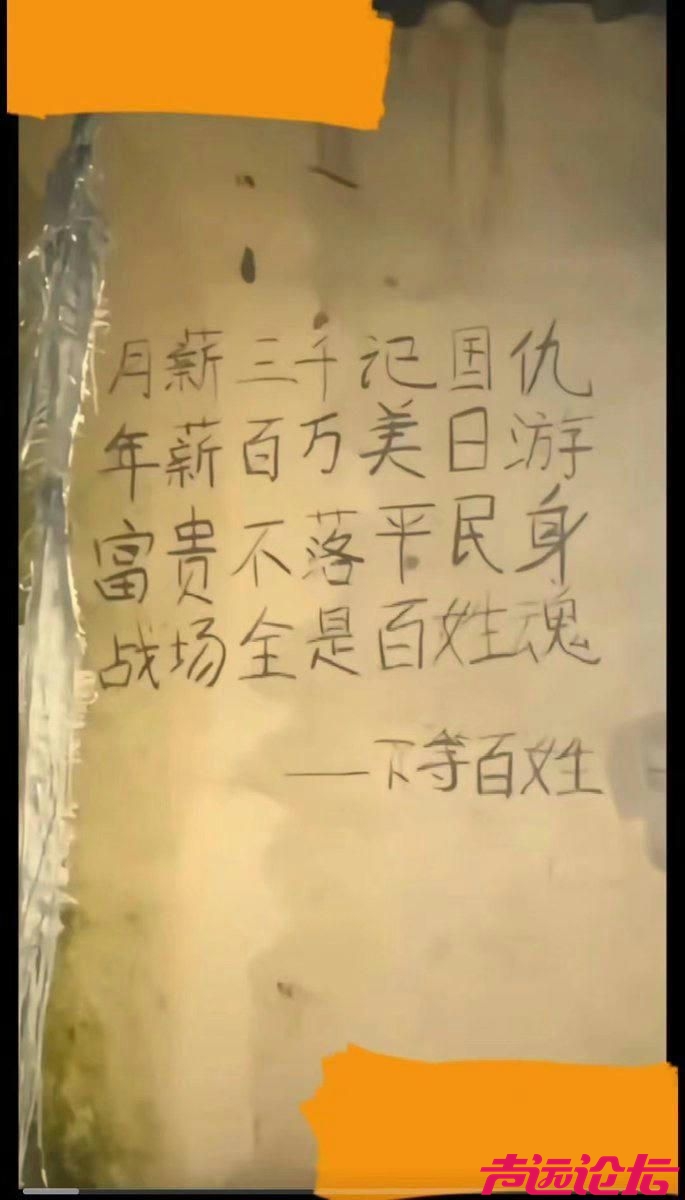 月薪三千记国仇
年薪百万美日游
富贵不落平民身
战场全是百姓魂
——下等百姓
志远论坛